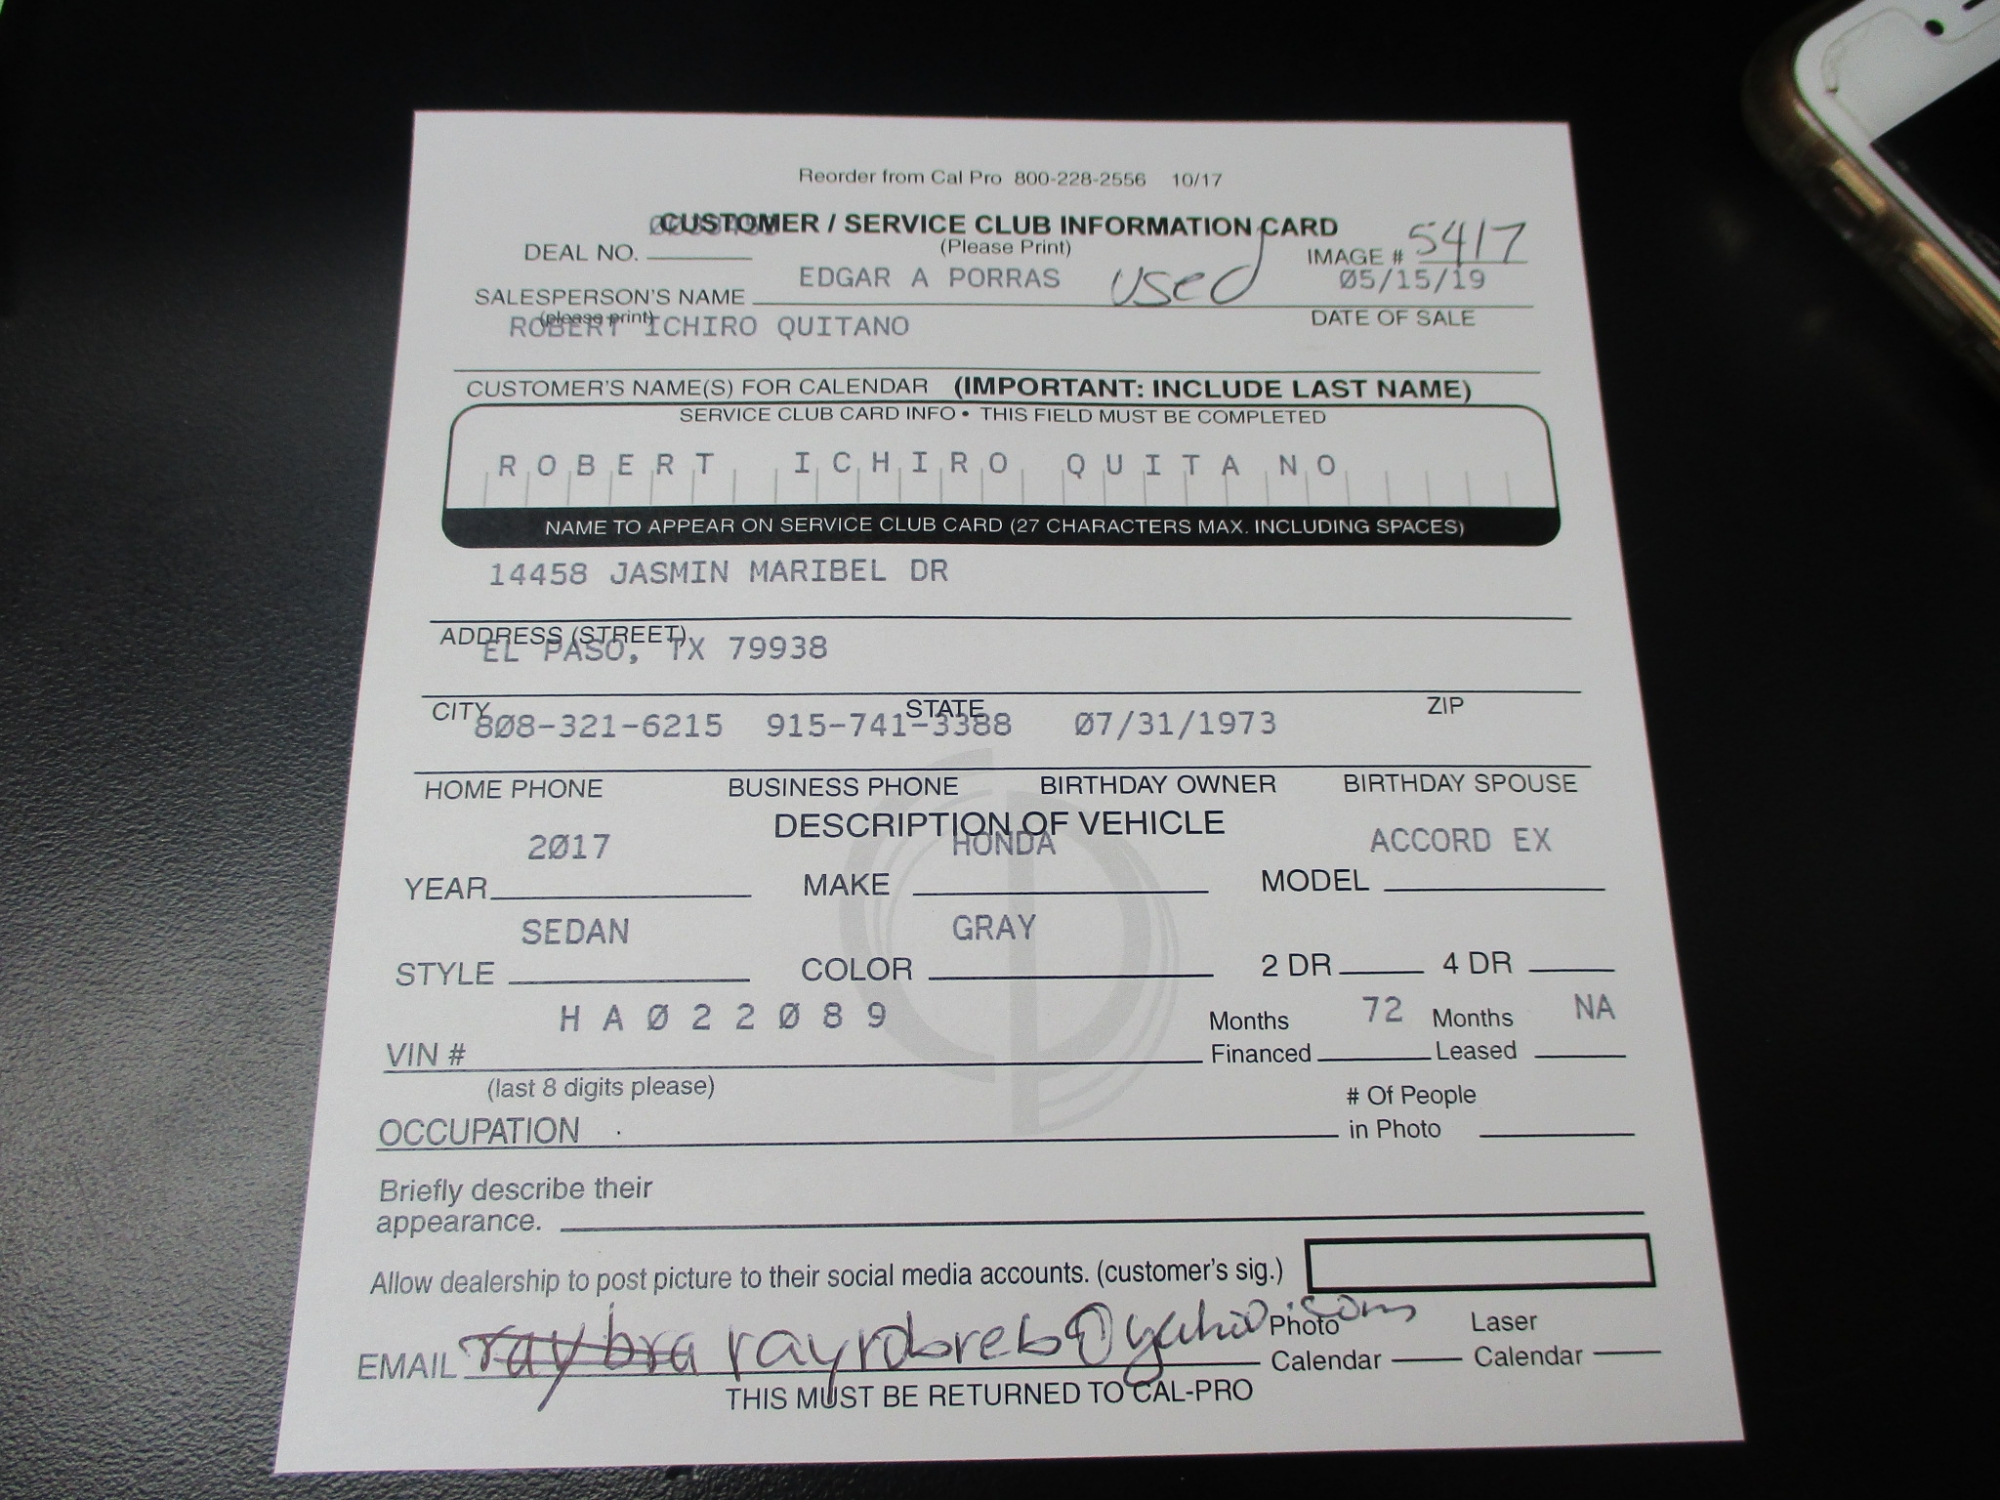 Reorder from Cal Pro 800-228-2556 10/17
CUSTOMER / SERVICE CLUB INFORMATION CARD
(Please Print)
DEAL NO.
IMAGE # 5417
EDGAR A PORRAS used 05/15/19
SALESPERSON'S NAME
(please print)
DATE OF SALE
ROBERT ICHIRO QUITANO
CUSTOMER'S NAME(S) FOR CALENDAR (IMPORTANT: INCLUDE LAST NAME)
SERVICE CLUB CARD INFO • THIS FIELD MUST BE COMPLETED
ROBERT ICHIRO QUITANO
NAME TO APPEAR ON SERVICE CLUB CARD (27 CHARACTERS MAX. INCLUDING SPACES)
14458 JASMIN MARIBEL DR
ADDRESS (STREET)
EL PASO, TX 79938
CITY STATE ZIP
808-321-6215 915-741-3388 07/31/1973
HOME PHONE BUSINESS PHONE BIRTHDAY OWNER BIRTHDAY SPOUSE
DESCRIPTION OF VEHICLE
2017 HONDA ACCORD EX
YEAR MAKE MODEL
SEDAN GRAY
STYLE COLOR 2 DR 4 DR
HA022089
VIN #
Months Financed 72 Months Leased NA
(last 8 digits please)
OCCUPATION
# Of People
in Photo
Briefly describe their
appearance.
Allow dealership to post picture to their social media accounts. (customer's sig.)
EMAIL raybra rayrobreb@yahoo.com
Photo Calendar Laser Calendar
THIS MUST BE RETURNED TO CAL-PRO